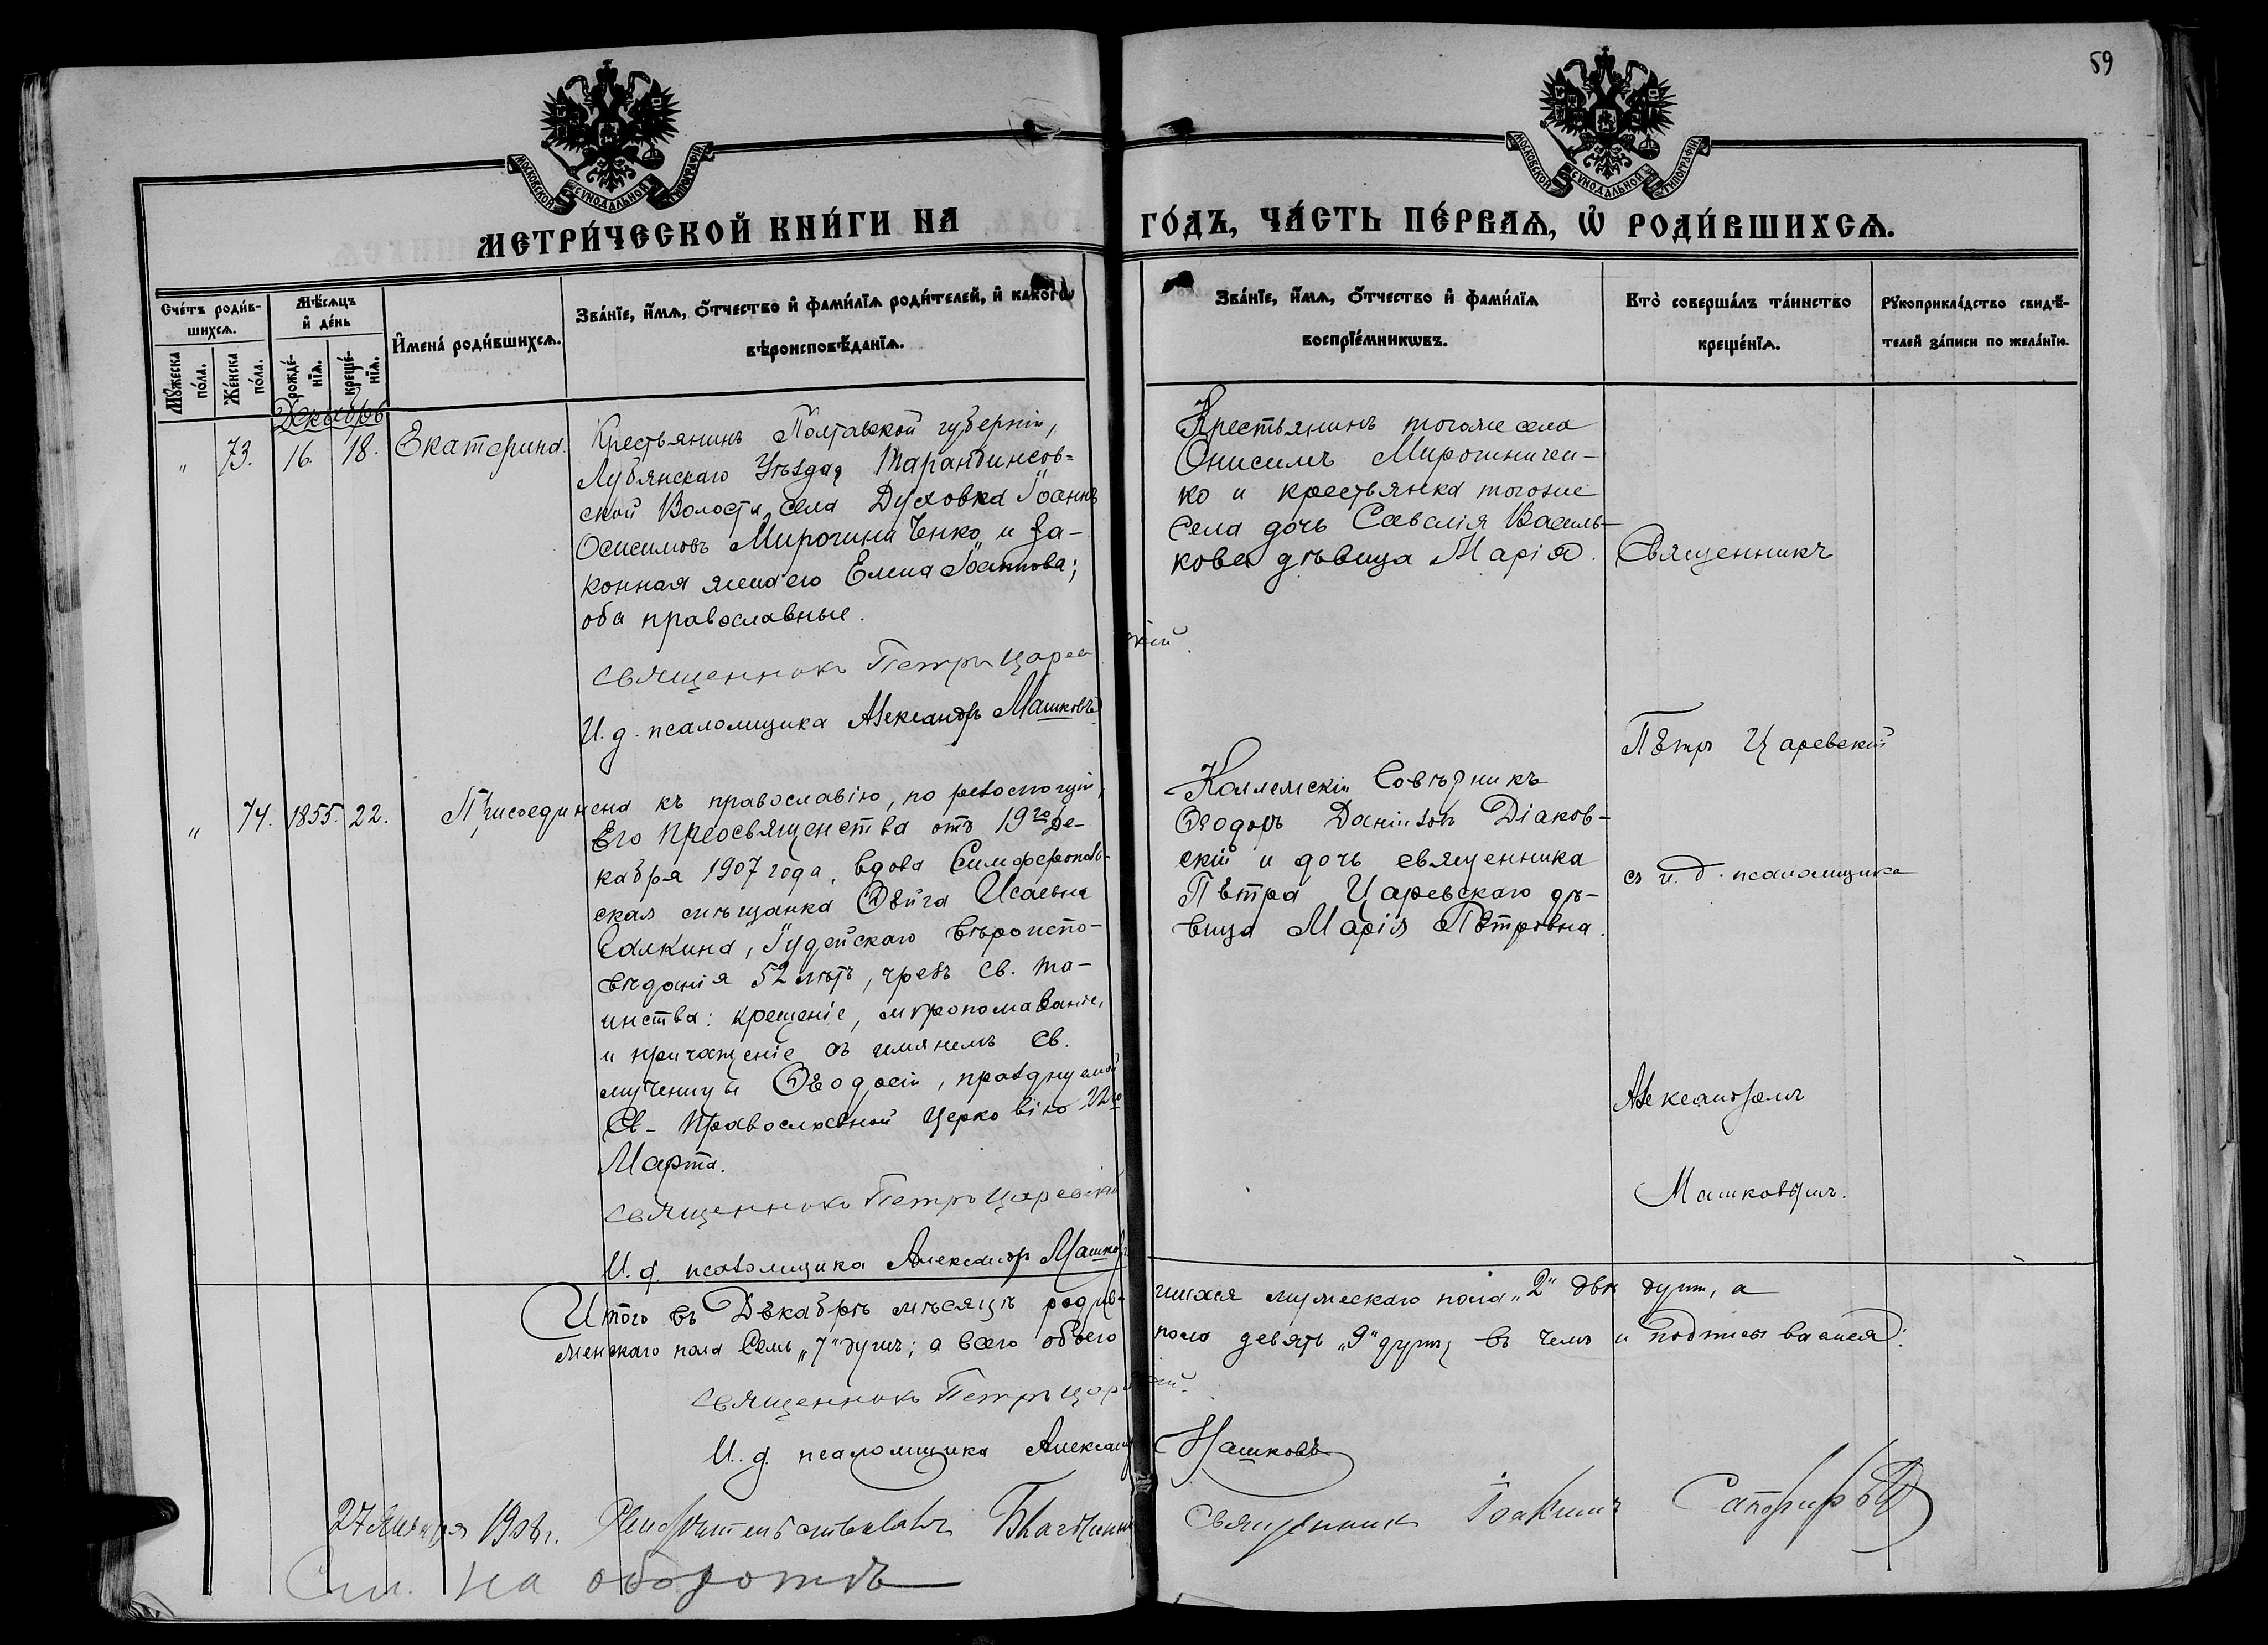 59
МОСКОВСКОЙ СѴНОДАЛЬНОЙ ТИПОГРАФІИ
МОСКОВСКОЙ СѴНОДАЛЬНОЙ ТИПОГРАФІИ
МЕТРИ́ЧЕСКОЙ КНИ́ГИ НА
ГО́ДЪ, ЧА́СТЬ ПЕ́РВАѦ, Ѡ҆ РОДИ́ВШИХСѦ.
Сче́тъ роди́в-
шихсѧ.
Мꙋ́жеска по́ла.
Же́нска по́ла.
Мѣ́сѧцъ
и҆ де́нь
рожде́-
нїѧ.
креще́-
нїѧ.
И҆мена̀ роди́вшихсѧ.
Зва́нїе, и҆́мѧ, ѻ҆́тчество и҆ фами́лїѧ роди́телей, и҆ како́гѡ
вѣроисповѣ́данїѧ.
Зва́нїе, и҆́мѧ, ѻ҆́тчество и҆ фами́лїѧ
воспрїе́мникѡвъ.
Кто̀ соверша́лъ та́инство
креще́нїѧ.
Рꙋкоприкла́дство свидѣ́-
телей за́писи по жела́нїю.
Декабрь
" 73. 16. 18. Екатерина.
Крестьянинъ Полтавской губерніи,
Лубянскаго Уѣзда,
ской Волости, села Духовка Іоаннъ
Онисимовъ Мирогиниченко, и за-
конная жена его Елена Іоаннова;
оба православные.
Священникъ Петръ Царевскій.
И. д. псаломщика Александръ Машковъ
Крестьянинъ тогоже села
Онисимъ Мирогиничен-
ко и крестьянка тогоже
села дочь Савелія Василь-
кова дѣвица Марія.
Священникъ
Пѣтръ Царевскій
съ и. д. псаломщика
Александромъ
Машковымъ.
" 74. 1855. 22.
Присоединена къ православію, по резолюціи,
Его Преосвященства отъ 19го Де-
кабря 1907 года, вдова Симферополь-
ская мѣщанка Фейга Исаевна
Салкина, Іудейскаго вѣроиспо-
вѣданія 52 лѣтъ, чрезъ св. та-
инства: крещеніе, мѵропомазаніе,
и причащеніе съ имянемъ св.
мученицы Ѳеодосіи, празднуемой
Св. Православной Церковію 22го
Марта.
Священникъ Петръ Царевскій
И. д. псаломщика Александръ Машковъ
Коллежскій Совѣтникъ
Ѳеодоръ Даніиловъ Діаков-
скій и дочь священника
Пѣтра Царевскаго дѣ-
вица Марія Пѣтровна.
Итого въ Дѣкабрѣ мѣсяцѣ родив-
шихся мужескаго пола „2" двѣ души, а
женскаго пола семь „7" душъ; а всего обоего
пола девять „9" душъ, въ чемъ и подписываемся:
Священникъ Петръ Царевскій.
И. д. псаломщика Александръ Машковъ
27 Января 1908 г. Свидѣтельствовалъ Благочинный
Священникъ Іоакимъ
См. на оборотѣ